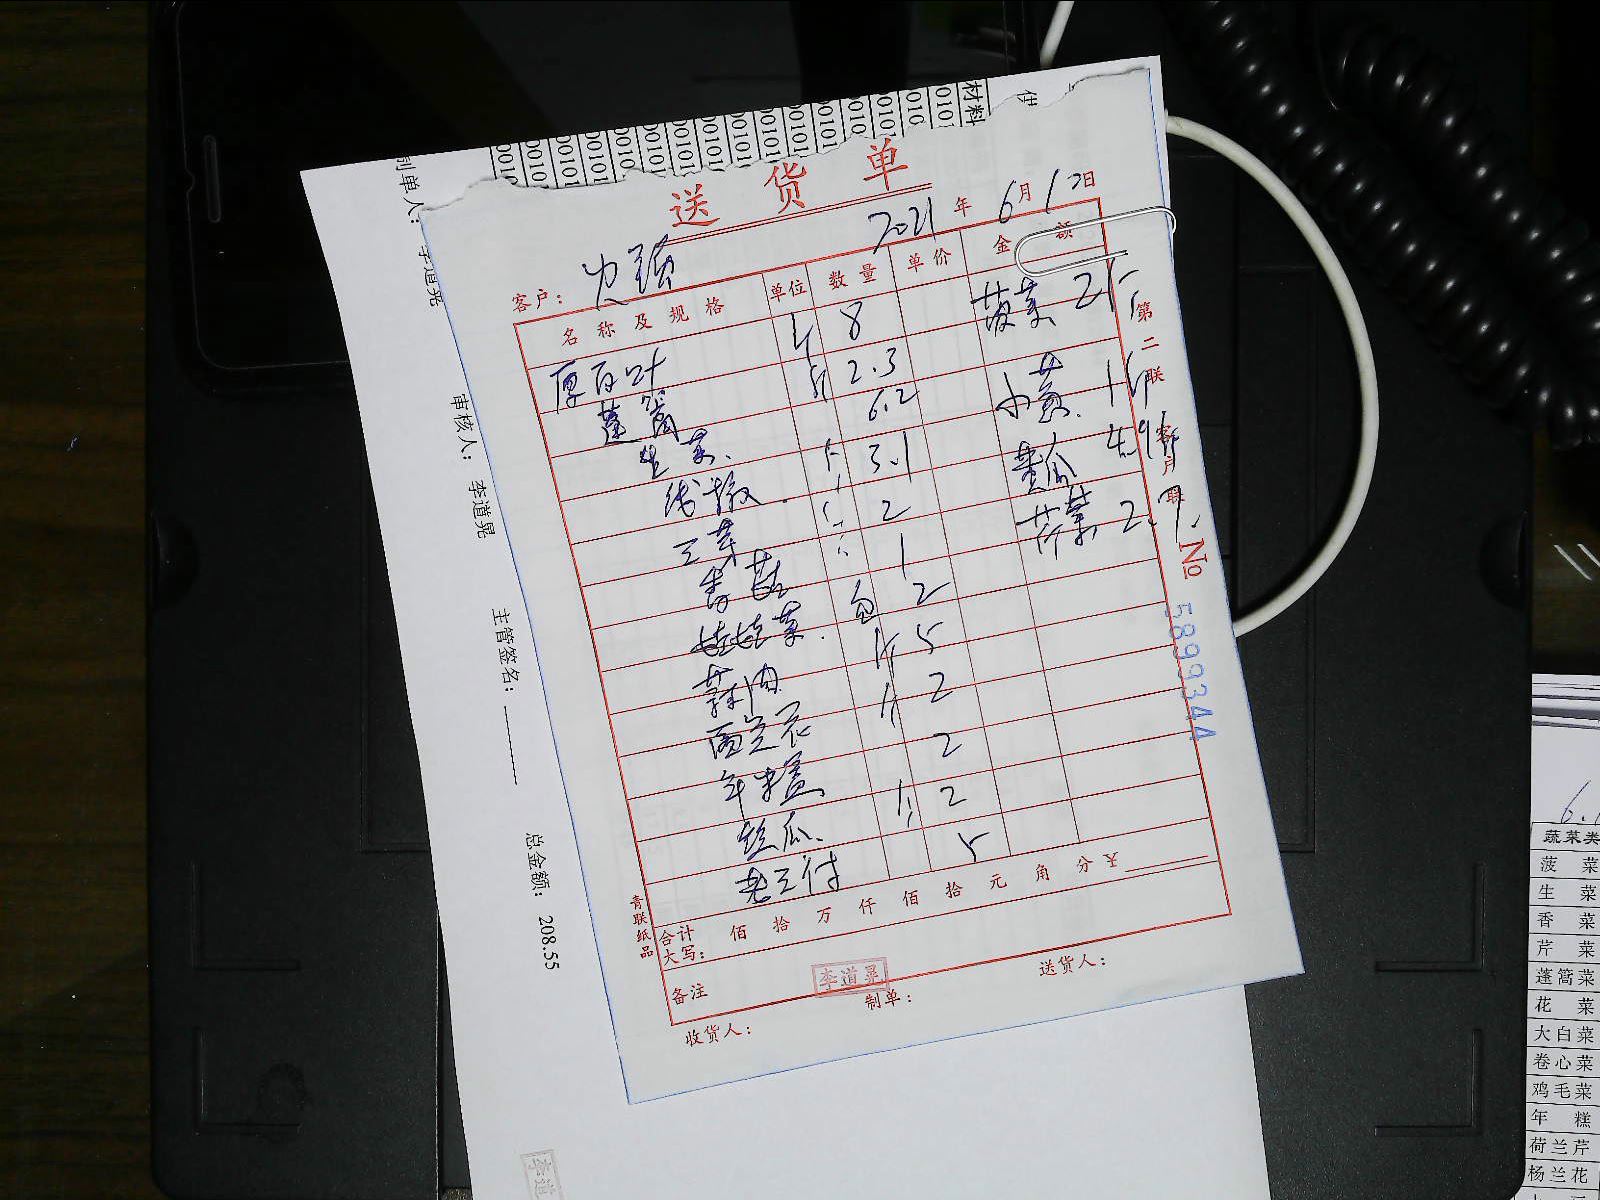 送货单
2021年6月1日
客户：
名称及规格 单位 数量 单价 金额
厚百叶 斤 8 菠菜 25
蓬蒿 斤 2.3
生菜 6.2 小黄 16
线椒 3.1 黄瓜 4.9
2 芹菜 2.7
青菇 1
娃娃菜 包 2
斤 5
西兰花 斤 2
年米糕 2
丝瓜 2
5
合计大写： 佰 拾 万 仟 佰 拾 元 角 分 ¥
备注
李道晃
制单：
送货人：
收货人：
青联纸品
第二联 客户联
No 5899344
材料
制单人： 李道晃
审核人： 李道晃
主管签名：
总金额： 208.55
李道
蔬菜类
菠菜
生菜
香菜
芹菜
蓬蒿菜
花菜
大白菜
卷心菜
鸡毛菜
年糕
荷兰芹
杨兰花